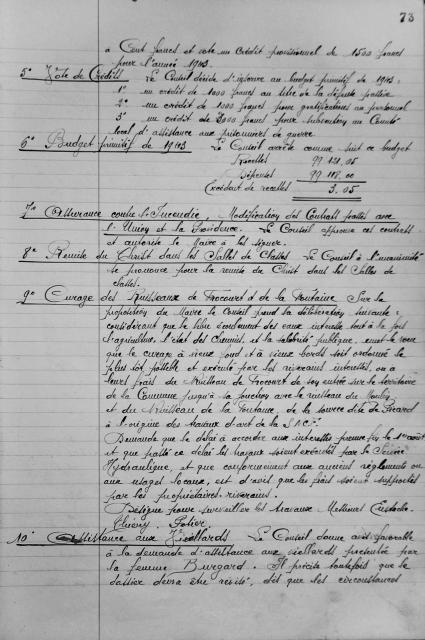 73
à Cent francs et vote un Crédit provisionnel de 1500 francs
pour l'année 1943
5° Vote de Crédits Le Conseil décide d'inscrire au budget primitif de 1943 :
1° un crédit de 1000 francs au titre de la défense passive
2° un crédit de 1000 francs pour gratifications au personnel
3° un crédit de francs pour subvention au Comité
local d'assistance aux prisonniers de guerre
6° Budget primitif de 1943 Le Conseil arrête comme suit ce budget
Recettes 99 121,05
Dépenses 99 118,00
Excédent de recettes 3,05
7° Assurance contre l'Incendie, Modification des Contrats passés avec
l'Union et la Providence. Le Conseil approuve ces contrats
et autorise le Maire à les signer.
8° Remise du Christ dans les Salles de Classes Le Conseil à l'unanimité
se prononce pour la remise du Christ dans les Salles de
classes.
9° Curage des Ruisseaux de Frocourt et de la Fontaine Sur la
proposition du Maire le Conseil prend la délibération suivante :
considérant que le libre écoulement des eaux intéresse tout à la fois
l'agriculture, l'état des Chemins, et la salubrité publique, émet le voeu
que le curage à vieux fond et à vieux bords soit ordonné le
plus tôt possible et exécuté par les riverains intéressés, ou à
leurs frais du Ruisseau de Frocourt de son entrée sur le territoire
de la Commune jusqu'à sa jonction avec le ruisseau du Moulin
et du Ruisseau de la Fontaine, de la source dite de
à l'origine des travaux d'art de la S.N.C.F.
Demande que le délai à accorder aux intéressés prenne fin le 1er août
et que passé ce délai les travaux soient exécutés par le Service
Hydraulique, et que conformément aux anciens règlements ou
aux usages locaux, est d'avis que les frais soient supportés
par les propriétaires riverains.
Désigne pour surveiller les travaux Messieurs Eustache
Thierry.
10° Assistance aux Vieillards Le Conseil donne avis favorable
à la demande d'assistance aux vieillards présentée par
la femme Burgard. Il précise toutefois que le
dossier devra être révisé, dès que les circonstances